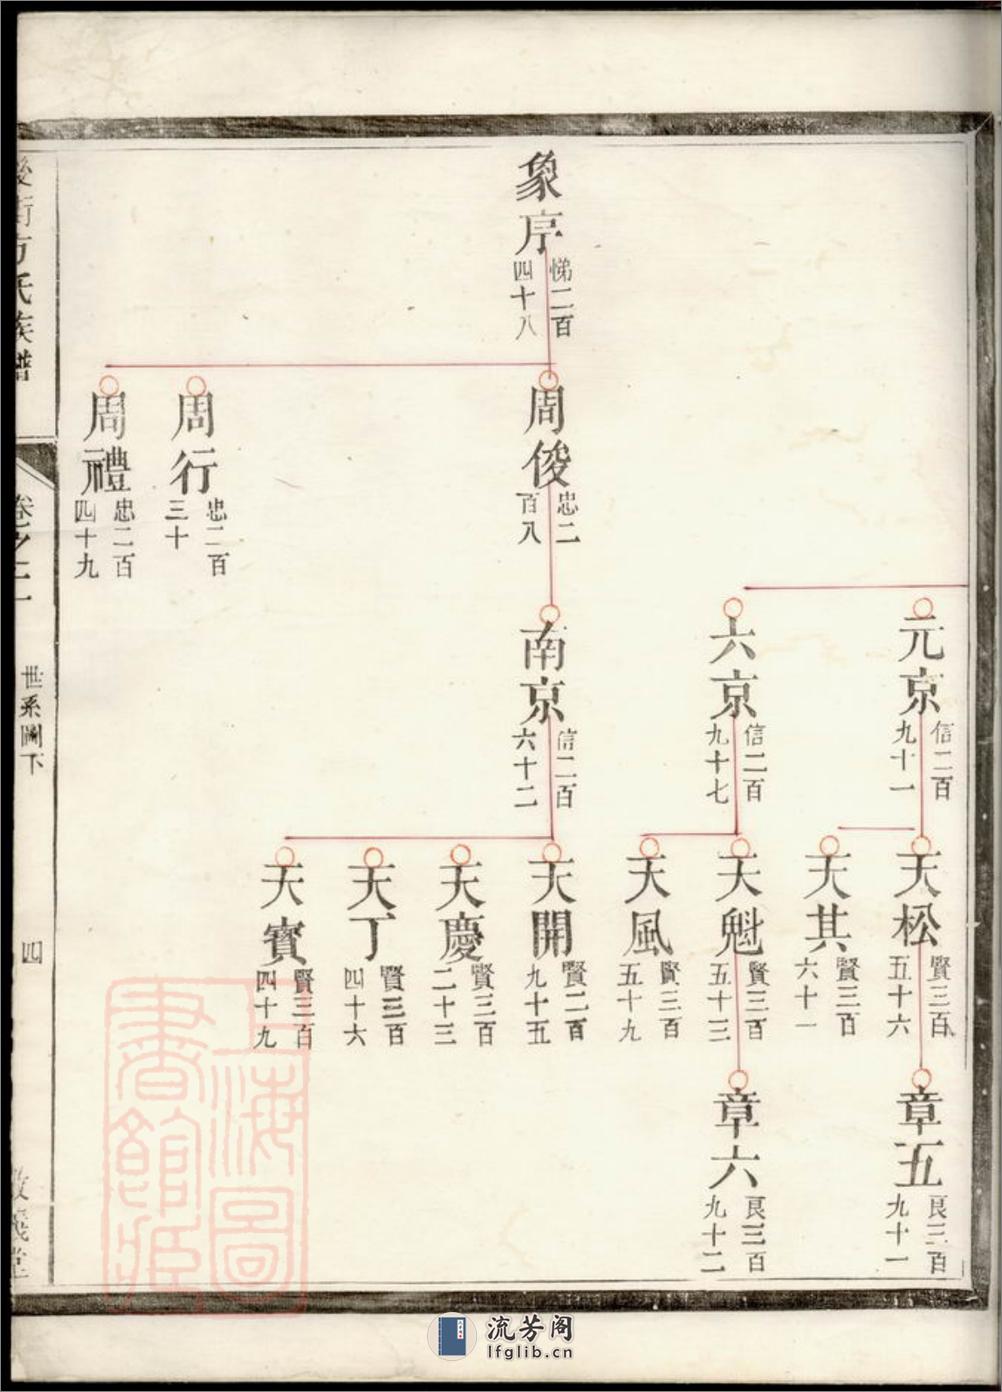 象序
悌二百
四十八
周俊
忠二
百八
周行
忠二百
三十
周禮
忠二百
四十九
元京
信二百
九十一
六京
信二百
九十七
南京
信二百
六十二
天松
賢三百
五十六
天其
賢三百
六十一
天魁
賢三百
五十三
天風
賢三百
五十九
天開
賢二百
九十五
天慶
賢三百
二十三
天丁
賢三百
四十六
天賓
賢三百
四十九
章五
良三百
九十一
章六
良三百
九十二
方氏族譜
卷之二
世系圖下
四
敦義堂
上海圖
書館藏
流芳阁
lfglib.cn